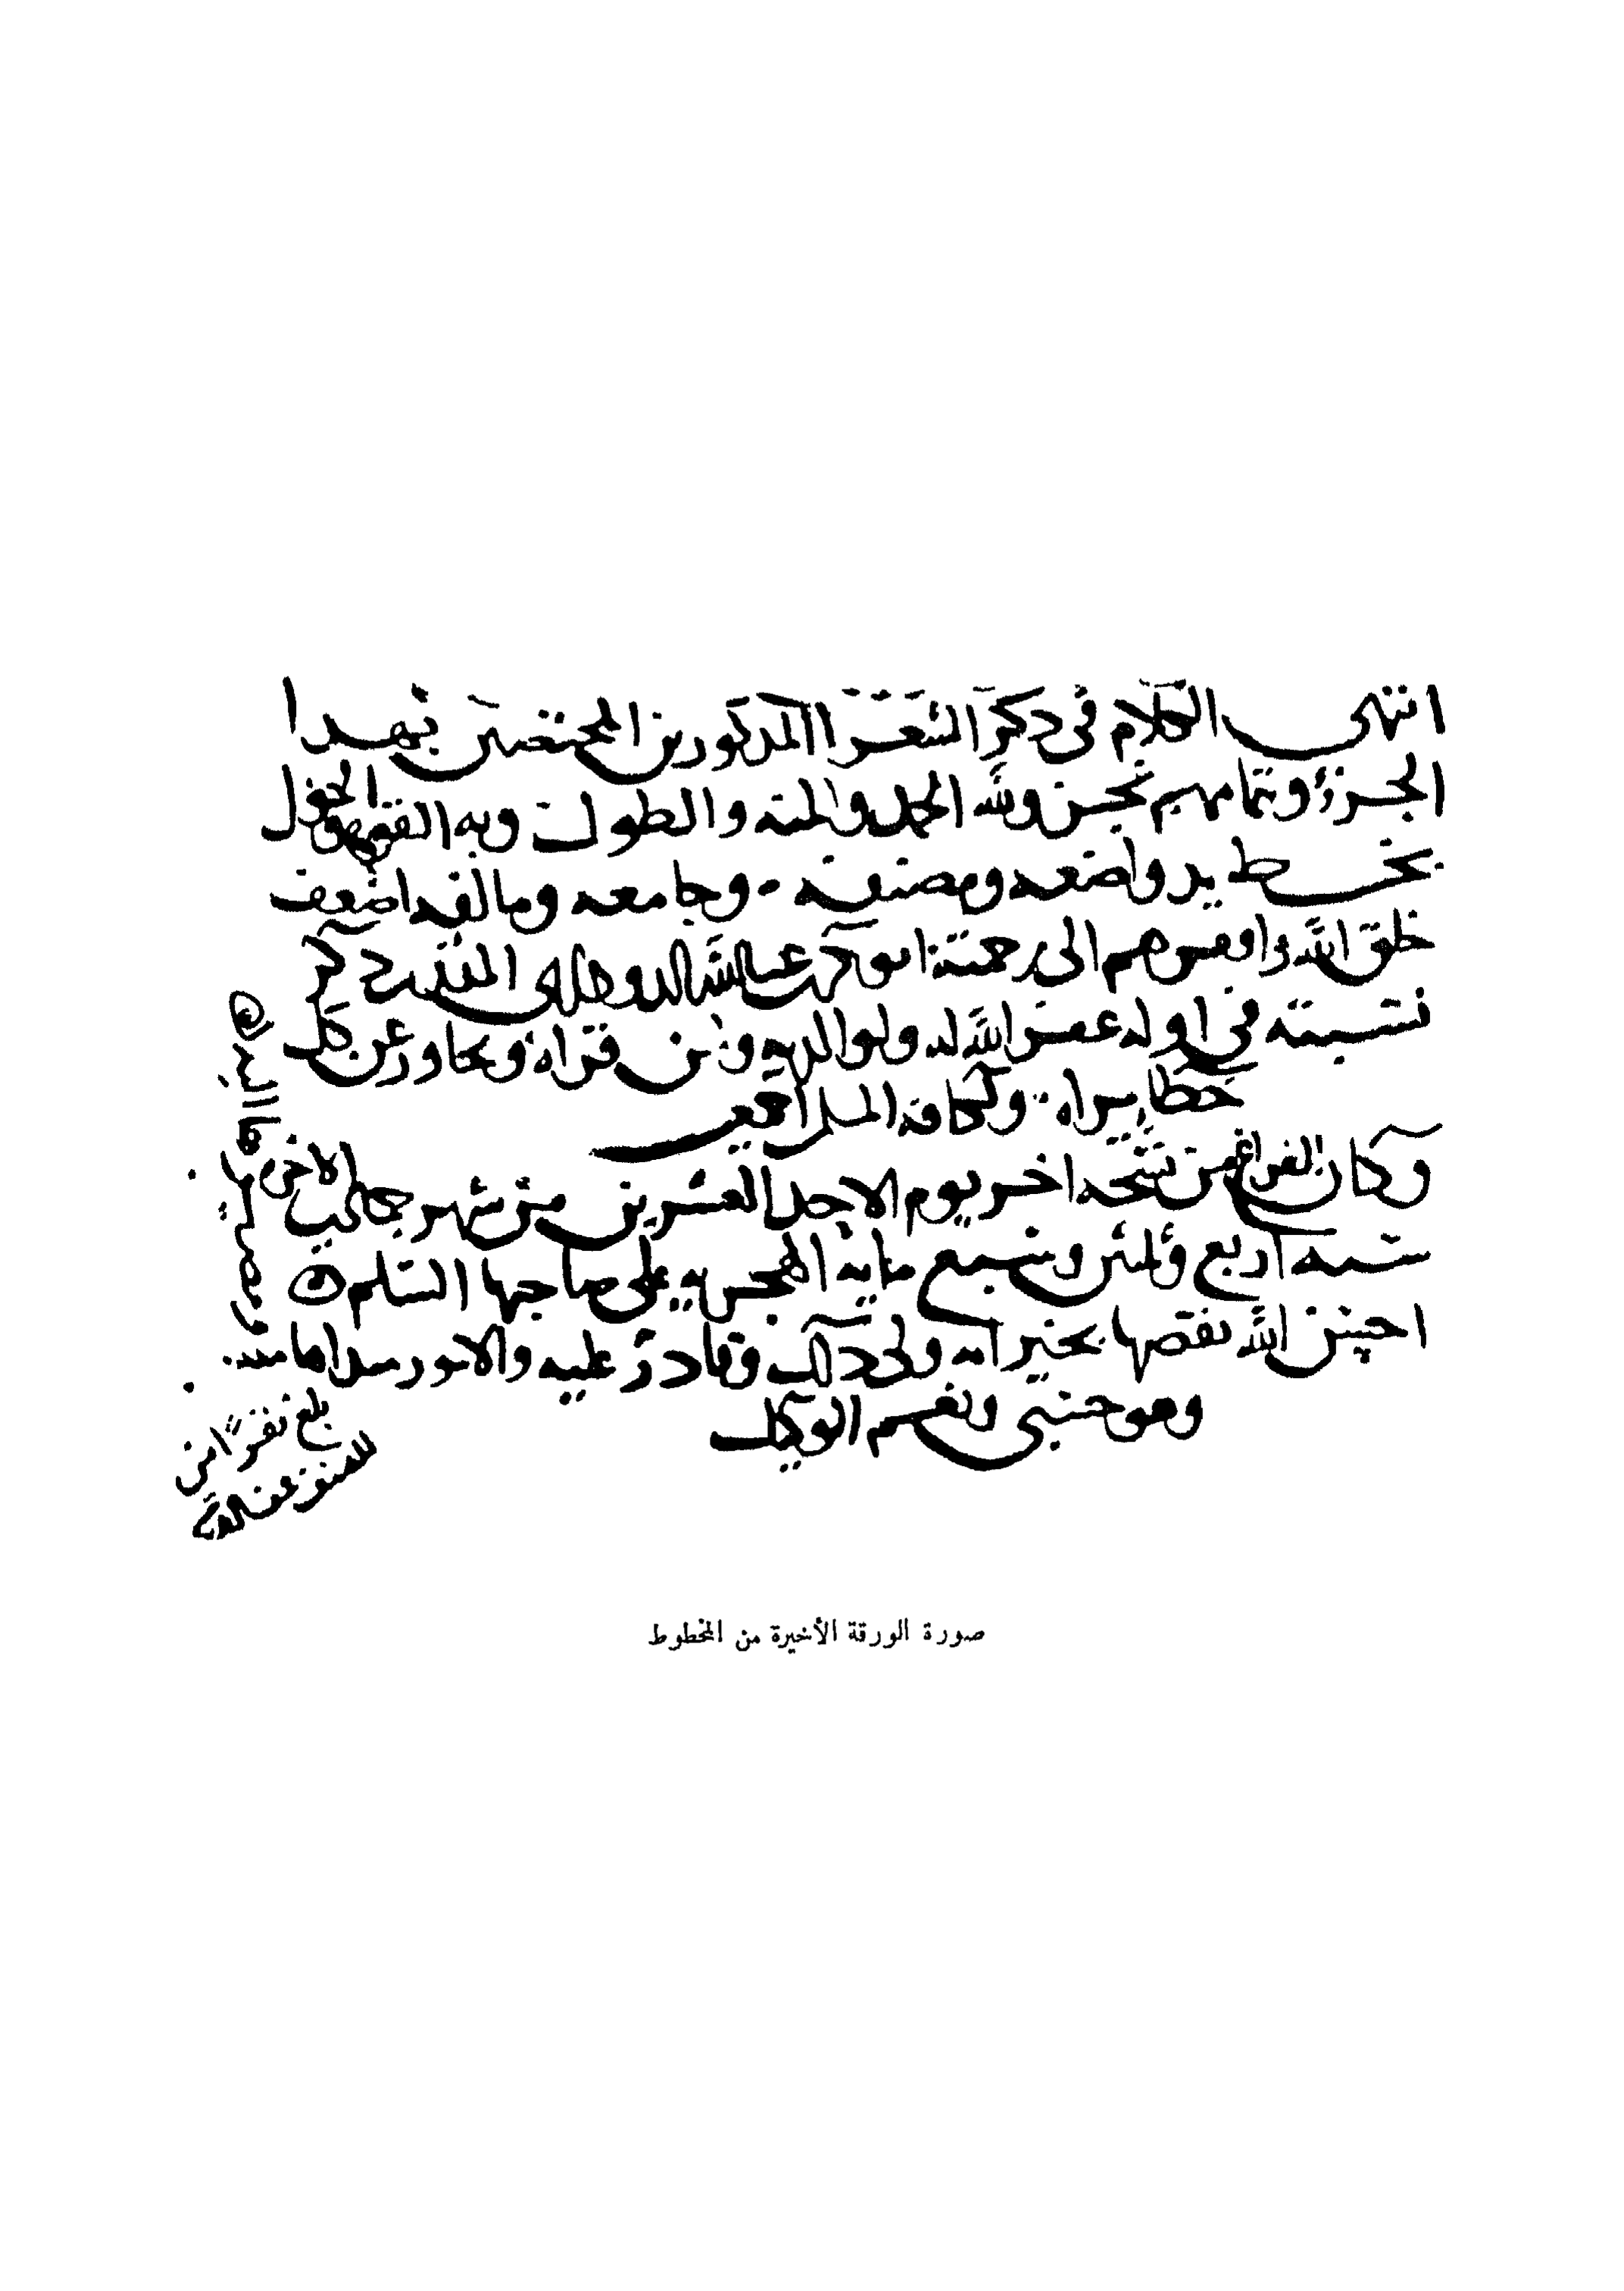 انتهى الكلام في ذكر الشعرا المذكورين المختصين بهذا
الجزؤ وتمامهم نجز ولله الحمد والمنه والطول وبه القوه والحول
بخط يد واضعه ومصنفه وجامعه ومالفه اضعف
خلق الله وافقرهم الى رحمته ابو بكر عبد الله الدواداري ذكر
نسبته في اوله غفر الله له ولوالديه ولمن قراه وتجاوز عن كل
خطا يراه ولكافة المسلمين
وكان الفراغ من نسخه اخر يوم الاحد العشرين من شهر جمادى الاخر
سنه اربع وثلثين وسبع مايه الهجريه على صاحبها السلم
احسن الله نقصها بخير انه ولي ذلك وقادر عليه والامور
وهو حسبي ونعم الوكيل
بلغ
صورة الورقة الأخيرة من المخطوط